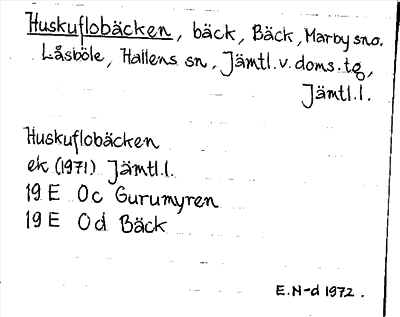 Huskuflobäcken, bäck, Bäck, Marby sno.
Låsböle, Hallens sn, Jämtl.v.doms.tg,
Jämtl.l.
Huskuflobäcken
ek (1971) Jämtl.l.
19 E 0c Gurumyren
19 E 0d Bäck
E.N-d 1972.